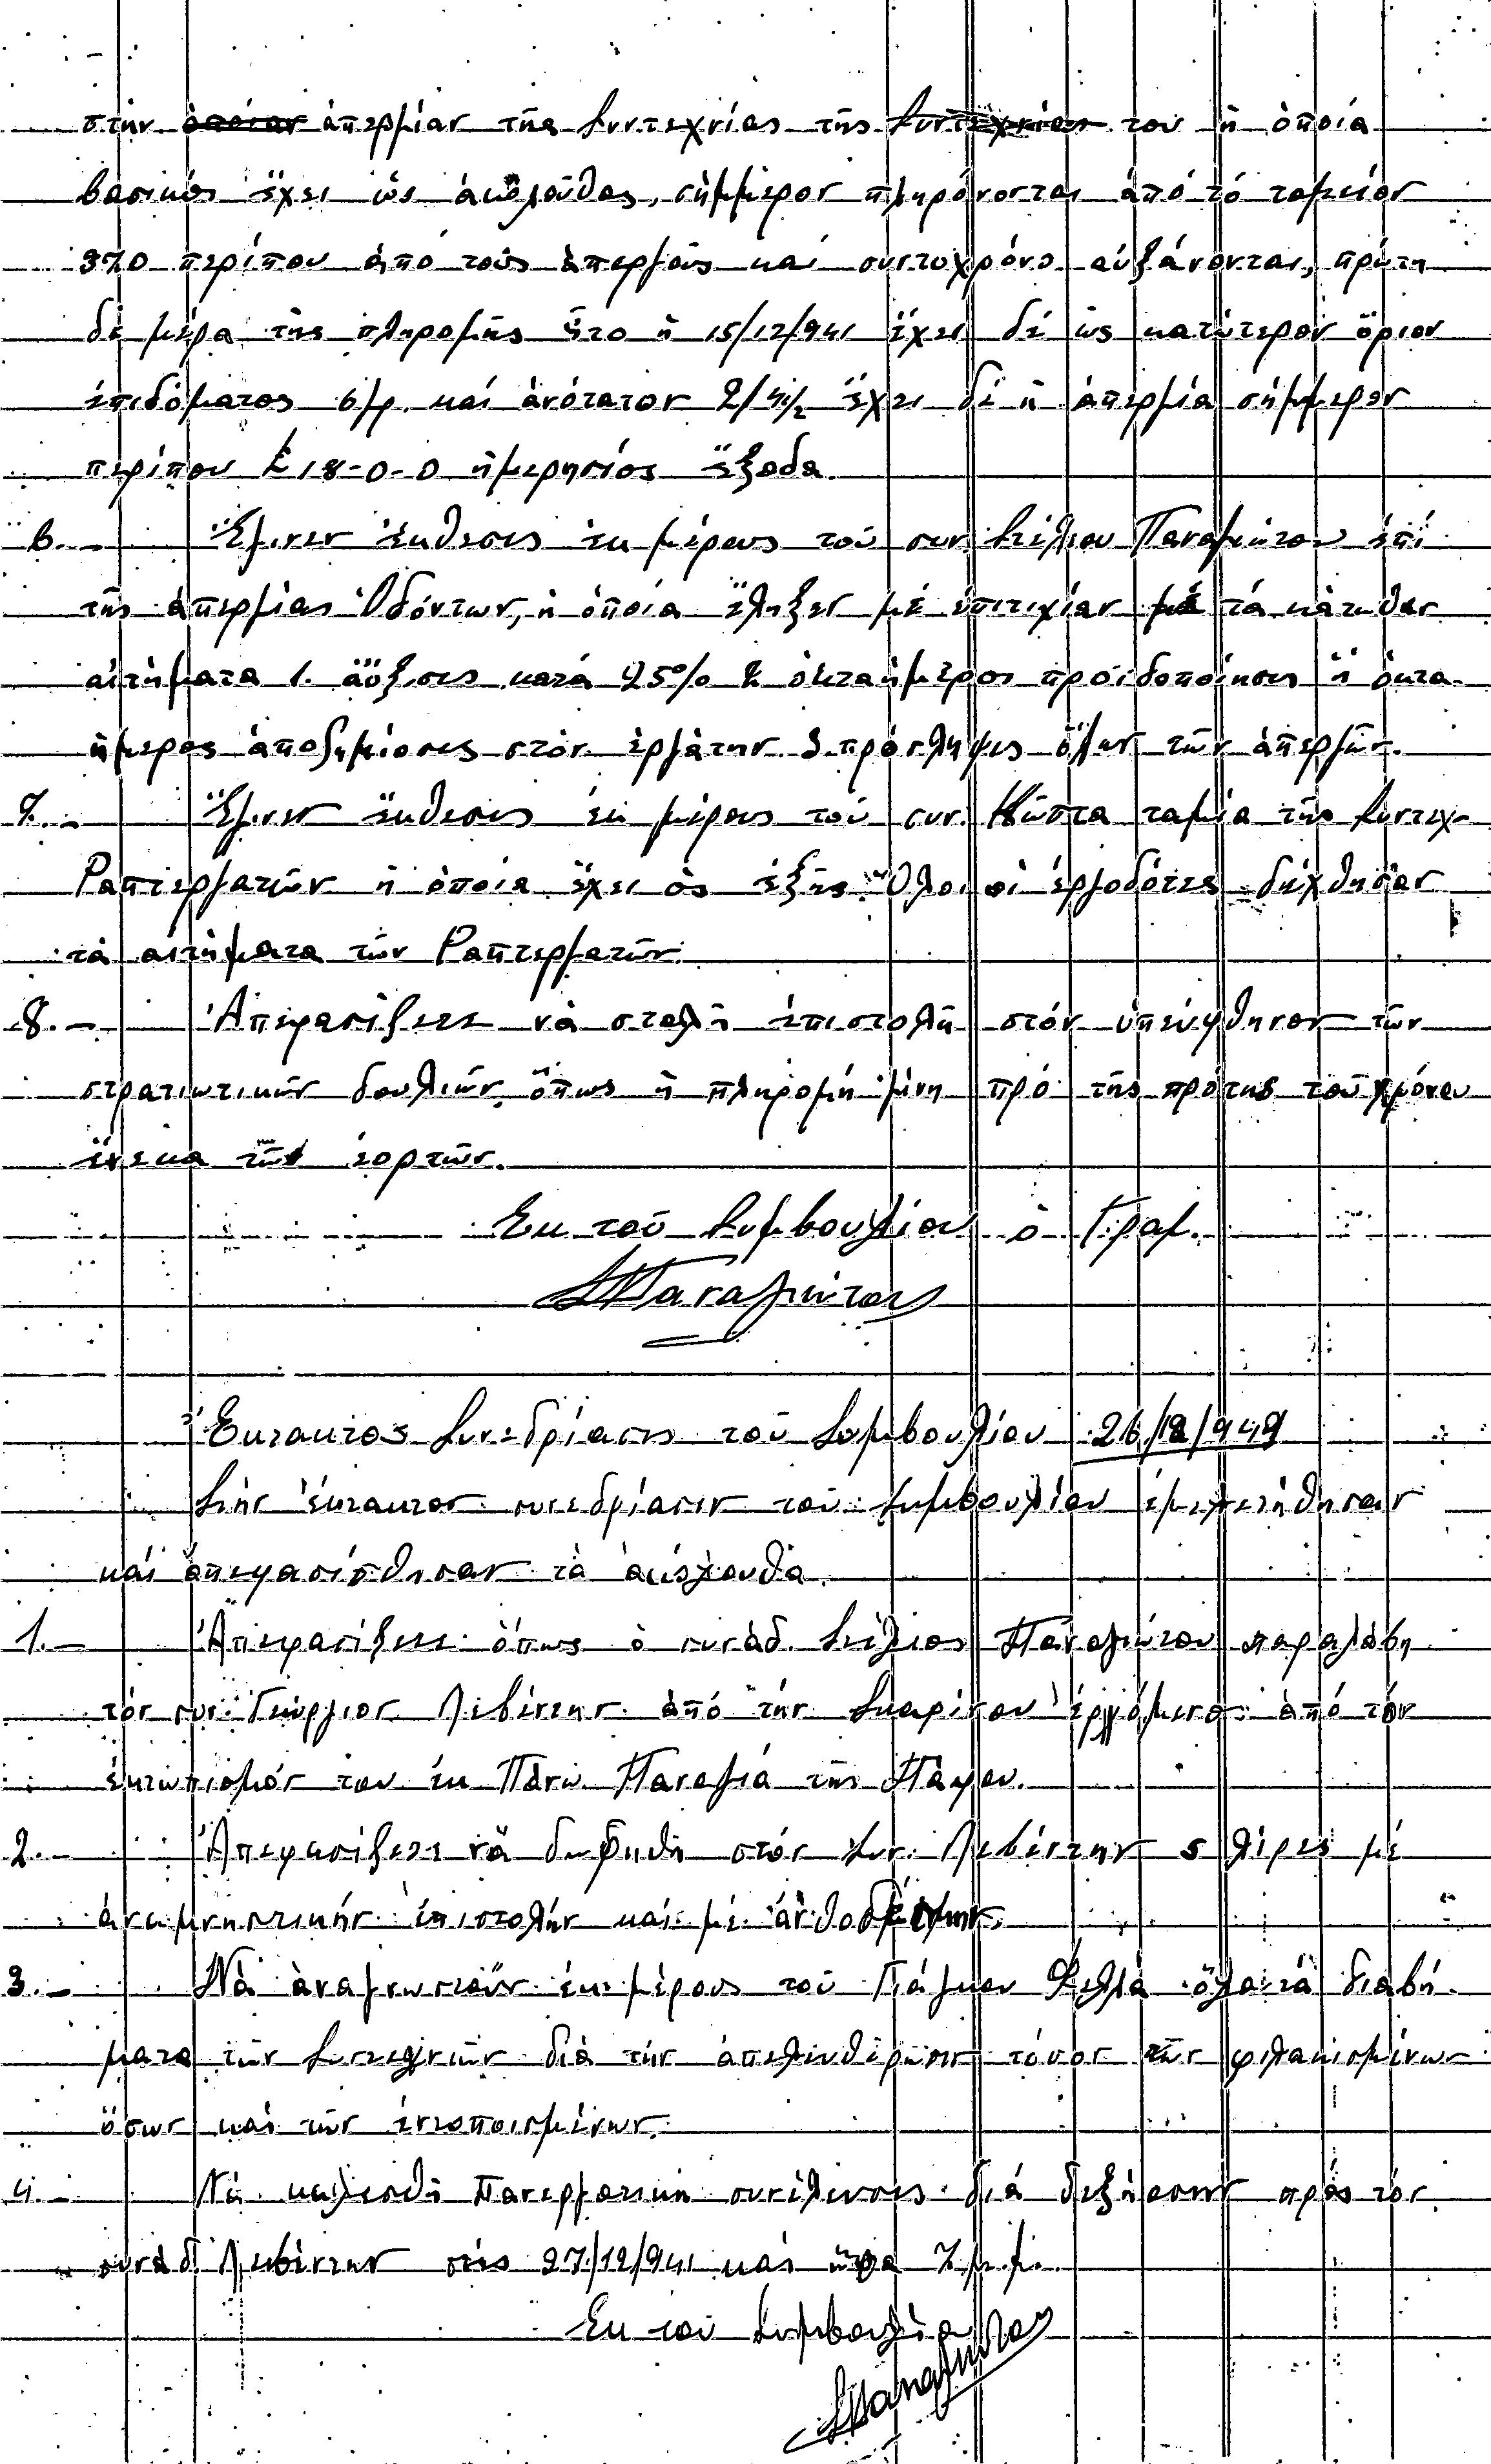 στήν ὁποίαν ἀπεργίαν τῆς Συντεχνίας τῆς Συντεχνίας του ἡ ὁποία
βασικῶς ἔχει ὡς ἀκολούθως, σήμμερον πληρόνονται ἀπό τό ταμεῖον
370 περίπου ἀπό τούς ἀπεργούς καί συστοχρόνο αὐξάνονται, πρώτη
δέ μέρα τῆς πληρομῆς ἦτο ἡ 15/12/941 ἔχει δέ ὡς κατώτερον ὅριον
ἐπιδόματος 6/ρ. καί ἀνότατον 2/4½ ἔχει δέ ἡ ἀπεργία σήμμερον
περίπου £18-0-0 ἡμερησίος ἔξοδα.
6.- Ἔγινεν ἔκθεσις ἐκ μέρους τοῦ συν. Στέλιου Παναγιώτου ἐπί
τῆς ἀπεργίας Ὀδόντων, ἡ ὁποία ἔληξεν μέ ἐπιτιχίαν μέ τά κάτωθεν
αἰτήματα 1. αὔξισις κατά 25% 2. ὀκταήμερος προειδοποίησις ἤ ὀκτα-
ήμερος ἀποζημίοσις στόν ἐργάτην 3 πρόσληψις ὅλων τῶν ἀπεργῶν.
7.- Ἔγινεν ἔκθεσις ἐκ μέρους τοῦ συν. Κώστα ταμία τῆς Συντεχ.
Ραπτεργατῶν ἡ ὁποία ἔχει ὁς ἑξῆς Ὅλοι οἱ ἐργοδότες δέχθησαν
τά αἰτήματα τῶν Ραπτεργατῶν.
8.- Ἀπεφασίζετε νά σταλῆ ἐπιστολή στόν ὑπεύφθηνον τῶν
στρατιωτικῶν δουλιῶν ὅπως ἡ πληρομή γίνη πρό τῆς πρότης τοῦ χρόνου
ἕνεκα τῶν ἑορτῶν.
Ἐκ τοῦ Συμβουλίου ὁ Γραμ.
ΣΠαναγιώτου
Ἔκτακτος Συνεδρίασις τοῦ Συμβουλίου 26/12/941
Στήν ἔκτακτον συνεδρίασιν τοῦ Συμβουλίου ἐμελετήθησαν
καί ἀπεφασίσθησαν τά ἀκόλουθα.
1.- Ἀπεφασίζετε ὅπως ὁ συνάδ. Στέλιος Παναγιώτου παραλάβη
τόν συν. Γεώργιον Λεβέντην ἀπό τήν Σκαρίνου ἐρχόμενο ἀπό τόν
ἐκτωπισμόν του ἐκ Πάνω Παναγιά τῆς Πάφου.
2.- Ἀπεφασίζετε νά δωθηθῆ στόν Συν. Λεβέντην 5 λίρες μέ
ἀναμνηστικήν ἐπιστολήν καί μέ ἀνθοδέσμην.
3.- Νά ἀναγνωστοῦν ἐκ μέρους τοῦ Γιάγκου ὅλα τά διαβή-
ματα τῶν Συντεχνιῶν διά τήν ἀπελευθέρωσιν τόσον τῶν φιλακισμένων
ὅσων καί τῶν ἐντοπισμένων.
4.- Νά καλεσθῆ Πανεργατική συνέλευσις διά δεξήοσην πρός τόν
συνάδ. Λεβέντην στίς 27/12/941 καί ὥρα 7 μ.μ.
Ἐκ τοῦ Συμβουλίου
ΣΠαναγιώτου